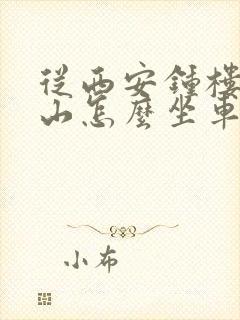 從西安鍾樓
山怎麼坐車
小布